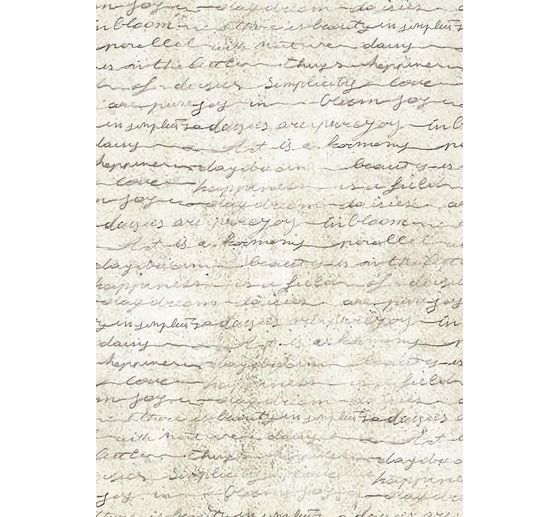 joy in daydream daisies a
in bloom there is beauty in simplicity
parallel with nature daisy
is in the little things happiness
of daisies simplicity love
are pure joy in bloom joy
in simplicity daisies are pure joy in b
daisy Art is a harmony
happiness daydream beauty is
love happiness is a field
joy daydream daisies a
daisies are pure joy in bloom
Art is a harmony parallel
daydream beauty is in the little
happiness is a field of daisies
daydream daisies are pure joy
in simplicity daisies are pure joy in
daisy Art is a harmony
happiness daydream beauty is
love happiness is a field
joy daydream daisies a
there is beauty in simplicity daisies
with nature daisy Art i
little things happiness daydream
of daisies simplicity love happin
joy in bloom joy daydream
is beauty in simplicity daisies are